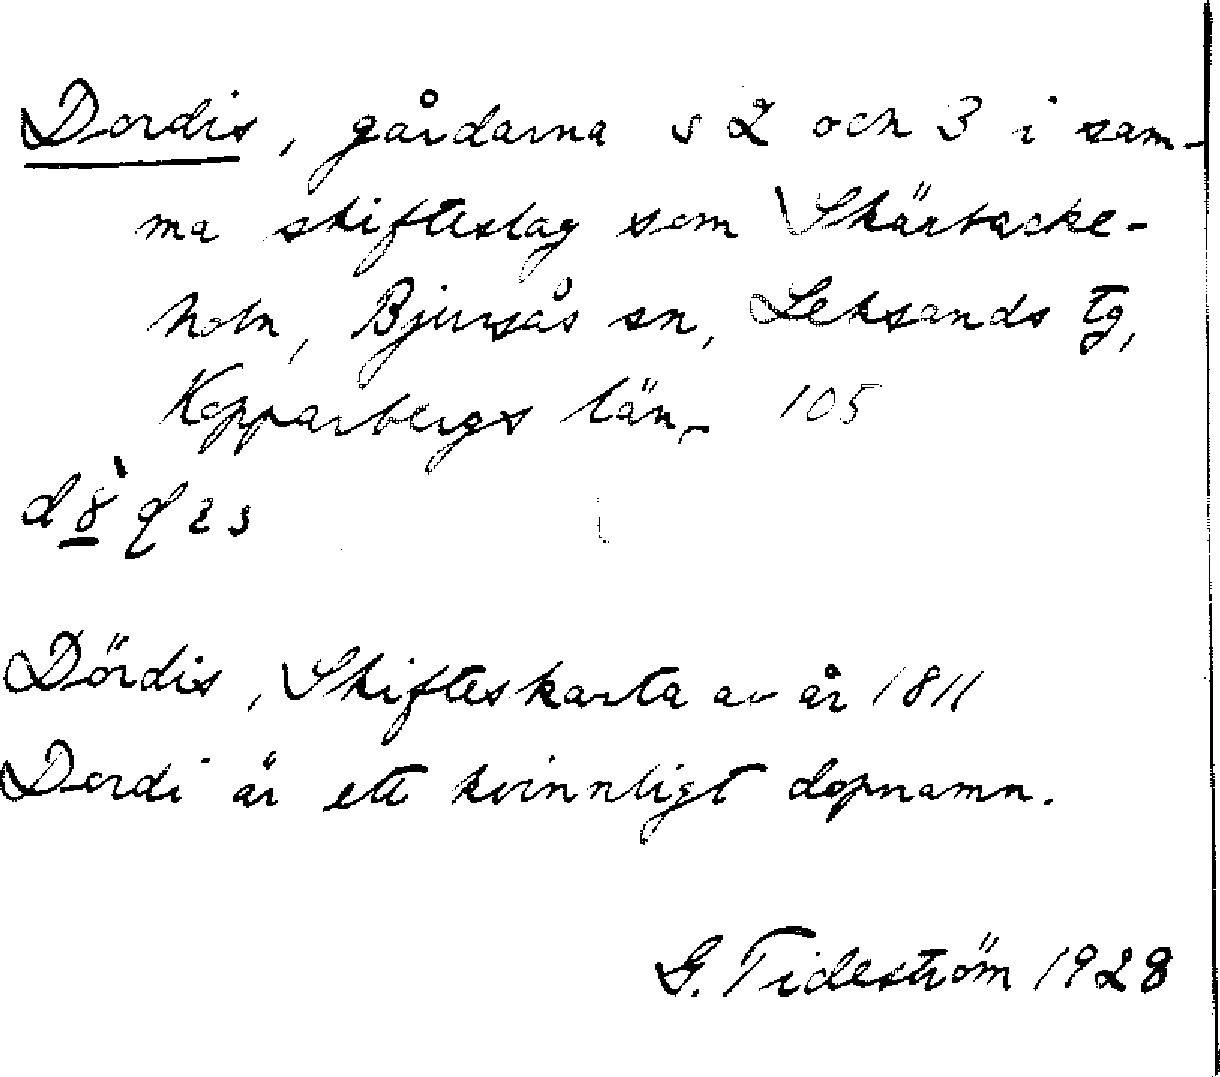 Dordis, gårdarna s 2 och 3 i sam-
ma skifteslag som Skärbacke-
holn, Bjursås sn, Leksands tg,
Kopparbergs län, 105
Dördis, Skifteskarta av år 1811
Dordi är ett kvinnligt dopnamn.
G. Tideström 1928